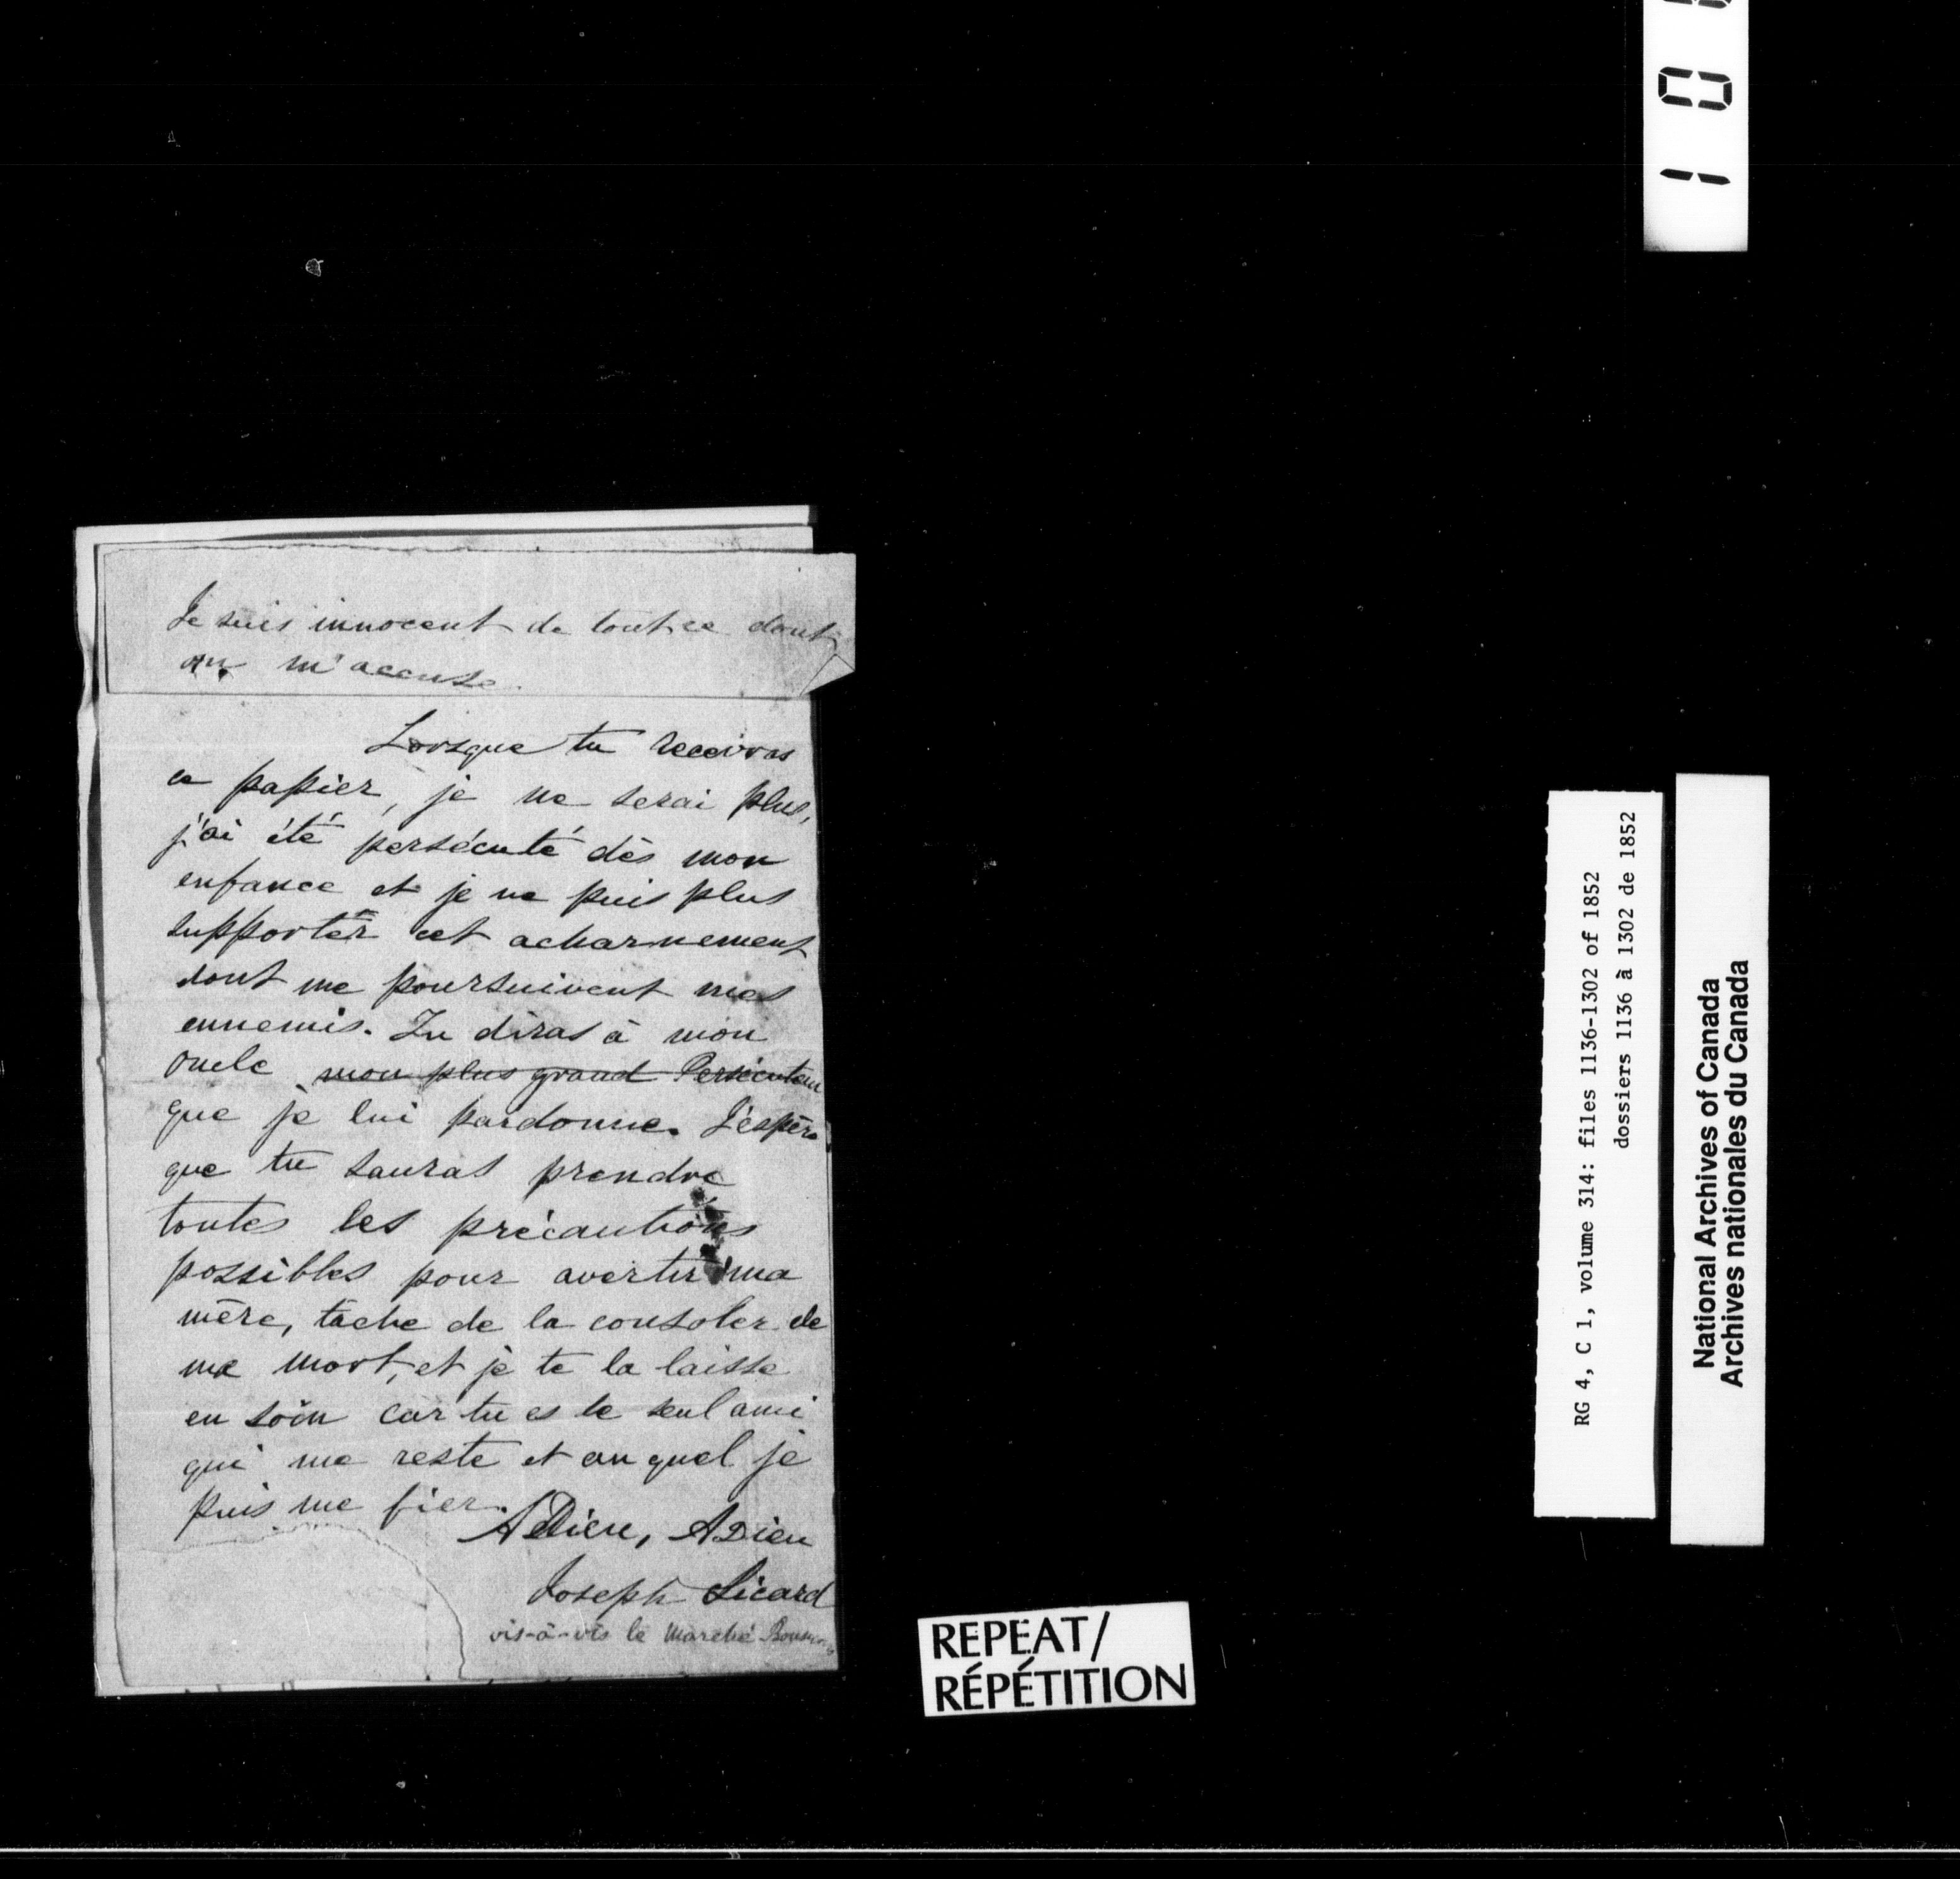 Je suis innocent de tout ce dont
on m'accuse.
Lorsque tu recevras
ce papier, je ne serai plus,
j'ai été persécuté dès mon
enfance et je ne puis plus
supporter cet acharnement
dont me poursuivent mes
ennemis. Tu diras à mon
oncle mon plus grand Persécuteur
que je lui pardonne. J'espère
que tu sauras prendre
toutes les précautions
possibles pour avertir ma
mère, tâche de la consoler de
ma mort, et je te la laisse
en soin car tu es le seul ami
qui me reste et au quel je
puis me fier.
ADieu, ADieu
Joseph Sicard
vis-à-vis le Marché
REPEAT/
RÉPÉTITION
RG 4, C 1, volume 314: files 1136-1302 of 1852
dossiers 1136 à 1302 de 1852
National Archives of Canada
Archives nationales du Canada
1 0